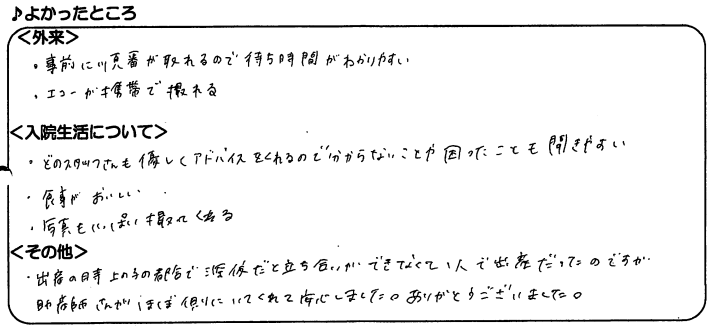 ♪よかったところ
<外来>
・事前に順番が取れるので待ち時間がわかりやすい
・エコーが携帯で撮れる
<入院生活について>
・どのスタッフさんも優しくアドバイスをくれるので分からないことや困ったことも聞きやすい
・食事がおいしい
・写真もいっぱい撮ってくれる
<その他>
・出産の時上の子の都合で深夜だと立ち合いができなくて1人で出産だったのですが
助産師さんがほぼ側にいてくれて安心しました。ありがとうございました。